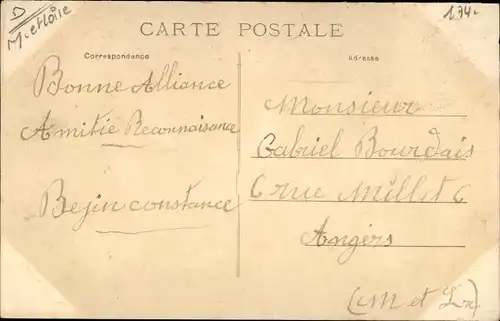 D
M et Loire
134
CARTE POSTALE
Correspondance
Bonne Alliance
Amitie Reconnaisance
Bejin constance
Adresse
Monsieur
Gabriel Bourdais
6 rue Millet 6
Angers
(M et L